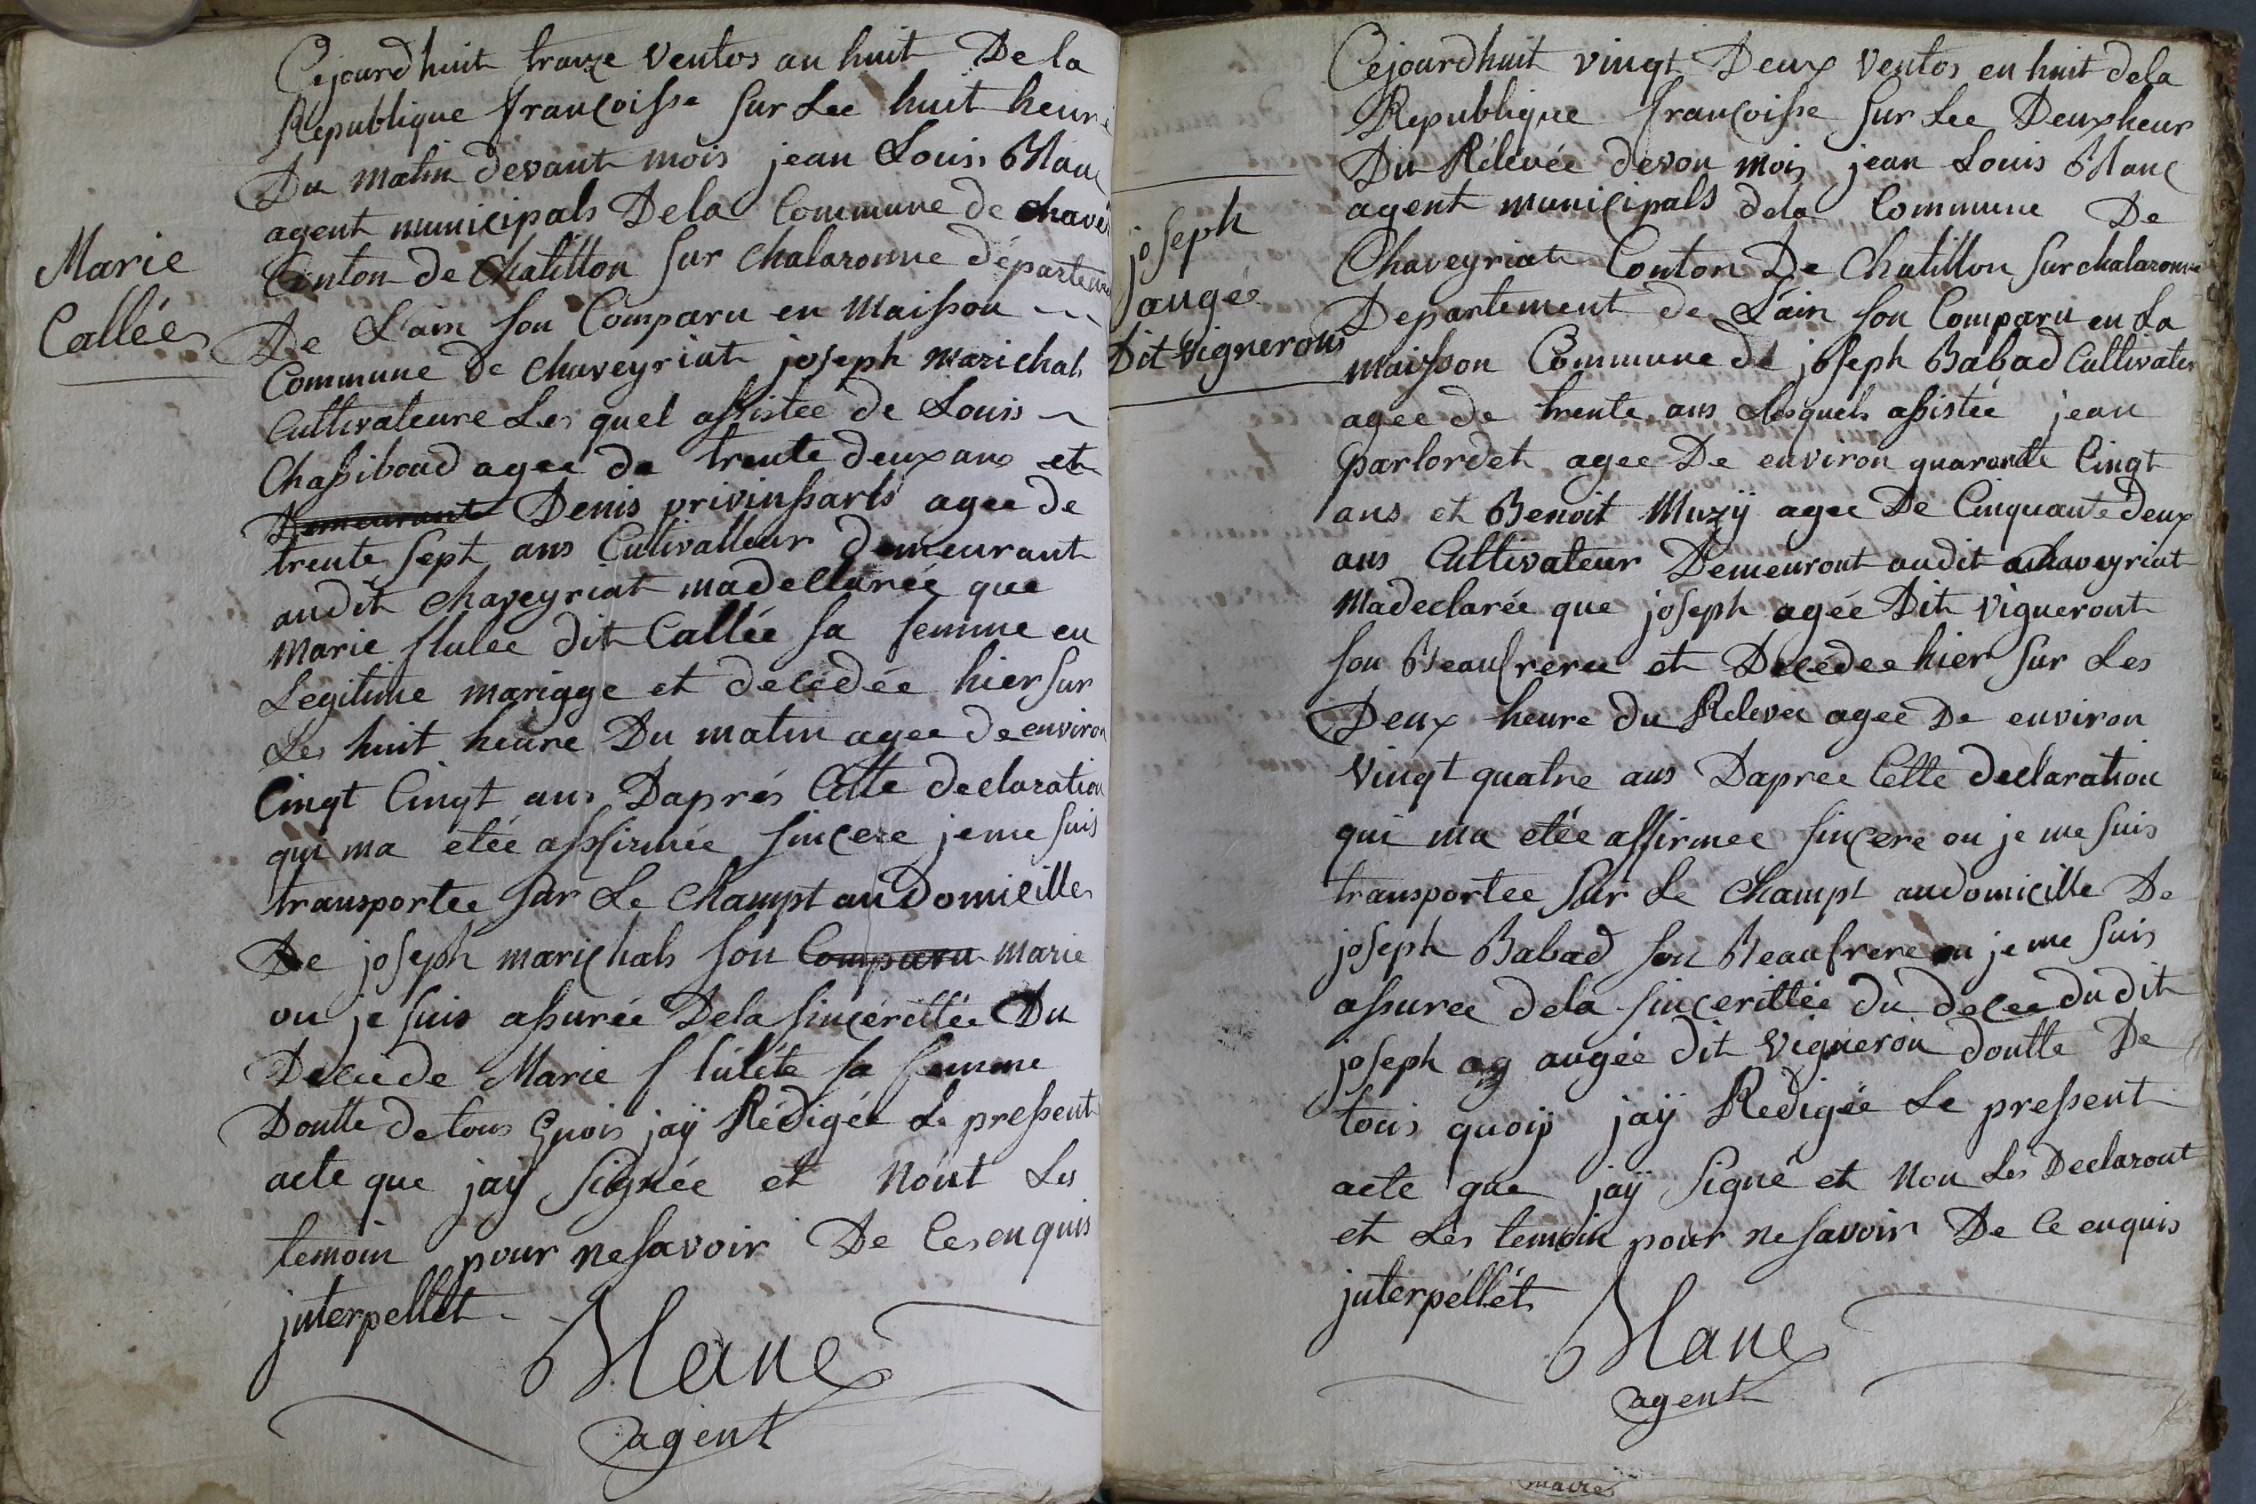 Marie
Callée
Cejourdhuit traize ventos an huit De la
Republique françoisse Sur Lee huit heure
Du matin devant mois jean Louis Blanc
agent municipals De la Commune de chavei
Canton de Chatillon Sur Chalaronne département
De L'ain son Comparu en Maisson
Commune de chaveyriat joseph marichals
Cultivateure Les quel assistée de Louis
Chassiboud agee de trente deux ans et
Demeurant Denis privinssarls agee de
trente Sept ans Cultivatteur demeurant
audit chaveyriat madellarée que
Marie flulee dit Callée Sa femme en
Legitime mariage et decédée hier Sur
Les huit heure Du matin agee de environ
Cingt Cingt ans Daprés Cette declaration
qui ma etée affirmée Sincere je me Suis
transportee Sur Le Champt au Domicille
De joseph marichals son Comparu marie
ou je Suis assurée De la Sincérettée Du
Decede Marie flulète Sa femme
Doutte de tous Quois jaÿ Rédigée Le pressent
acte que jaÿ Signée et Nont Les
temoin pour ne Savoir De Ces enquis
jnterpellet
Blanc
agent
joseph
augée
Dit vignerons
Cejourdhuit vingt Deux Ventos en huit dela
Republique françoisse Sur Lee Deux heur
Du Rélevée devon mois jean Louis Blanc
agent municipals dela Commune De
Chaveyriat Conton De Chatillon Sur chalaronne
Departement de L'ain son Comparu en La
maisson Commune de joseph Babad Cultivateur
agee de trente ans Lesquels assistée jean
parlordet agee De environ quarante Cingt
ans et Benoit Muzÿ agee De Cinquante deux
ans Cultivateur Demeuront audit achaveyriat
Madeclarée que joseph agée Dit vigneront
son Beaufreree et Decedee hier Sur Les
Deux heure du Relevée agee De environ
Vingt quatre ans Dapree Cette declaration
qui ma etée affirmee Sincere ou je me Suis
transportee Sur Le Champt audomicille De
joseph Babad son Beaufrere ou je me Suis
assuree dela Sincerittée du decee du dit
joseph ag augée dit Vigneron doutte De
tous quoiÿ jaÿ Redigée Le pressent
acte que jaÿ Signé et Non Les Declaront
et Les temoin pour ne Savoir De Ce enquis
jnterpéllét
Blanc
agent
maire